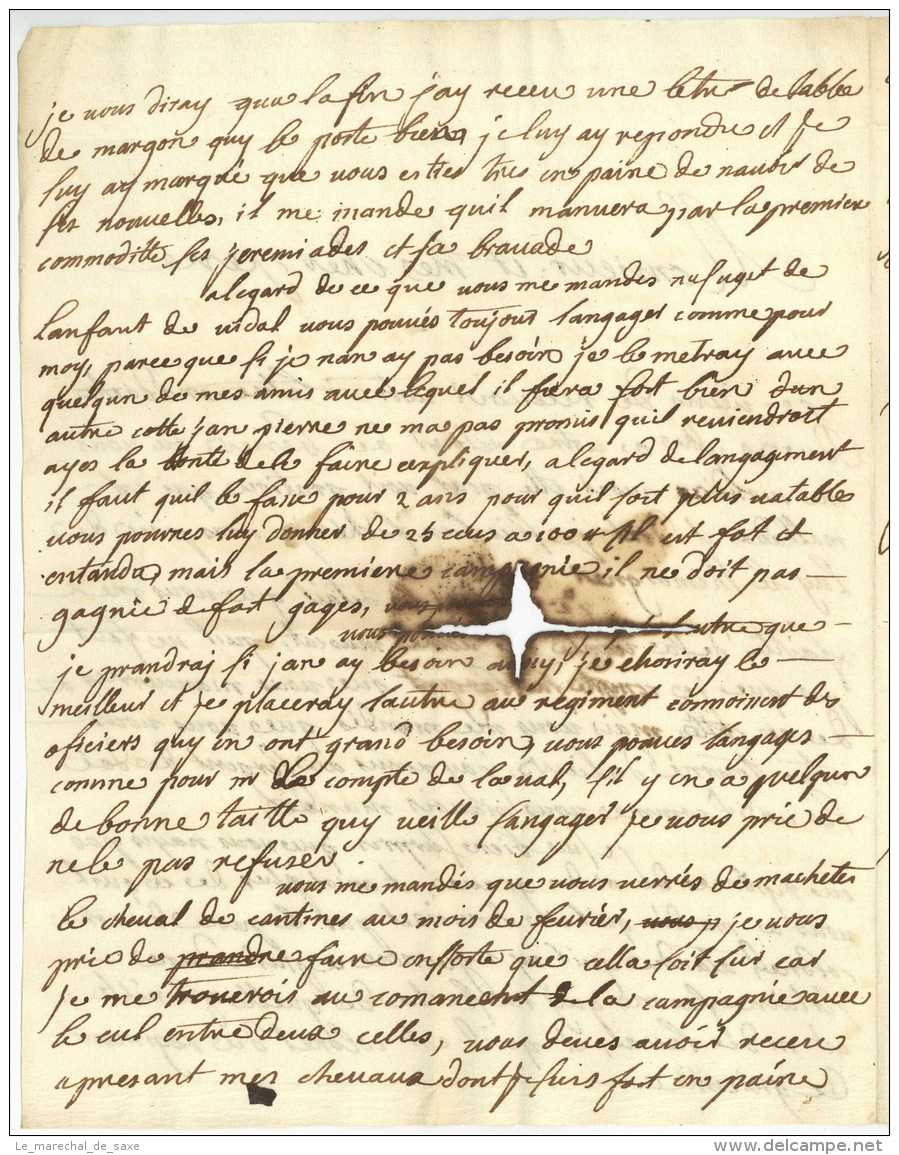 je vous diray qua la fin j'ay receu une letre de labbe
de margon quy se porte bien, je luy ay repondu et je
luy ay marqué que vous esties tres en paine de navoir de
ses nouvelles, il me mande quil manvera par la premiere
commoditte ses jeremiades et sa bravade
alegard de ce que vous me mandes au suget de
lanfant de vidal vous pouvés toujour langager comme pour
moy, parce que si je nan ay pas besoin je le metray avec
quelqun de mes amis avec lequel il sera fort bien dun
autre cotte jan pierre ne ma pas promis quil reviendroit
ayes la bonte de le faire expliquer, alegard de langagement
il faut quil le fasse pour 2 ans pour quil soit plus valable
vous pourres luy donner de 25 ecus a 100 # sil est fort et
entandu, mais la premiere campagnie il ne doit pas
gagnie de fort gages, vous
vous lautre que
je prandraj si jan ay besoin je choisiray le
meilleur et je placeray lautre au regiment connoissent des
oficiers quy en ont grand besoin, vous pouves langages
comme pour mr de compte de laval, sil y en a quelqun
de bonne taille quy veille sangager je vous prie de
ne le pas refuser
vous me mandés que vous verrés de macheter
le cheval de cantines au mois de fevrier, vous, je vous
prie de prandre faire ensorte que cella soit sur car
je me trouverois au comancement de la campagnie avec
le cul entre deux celles, vous deves avoir receu
apresant mes chevaux dont je suis fort en paine
Le_marechal_de_saxe
www.delcampe.net